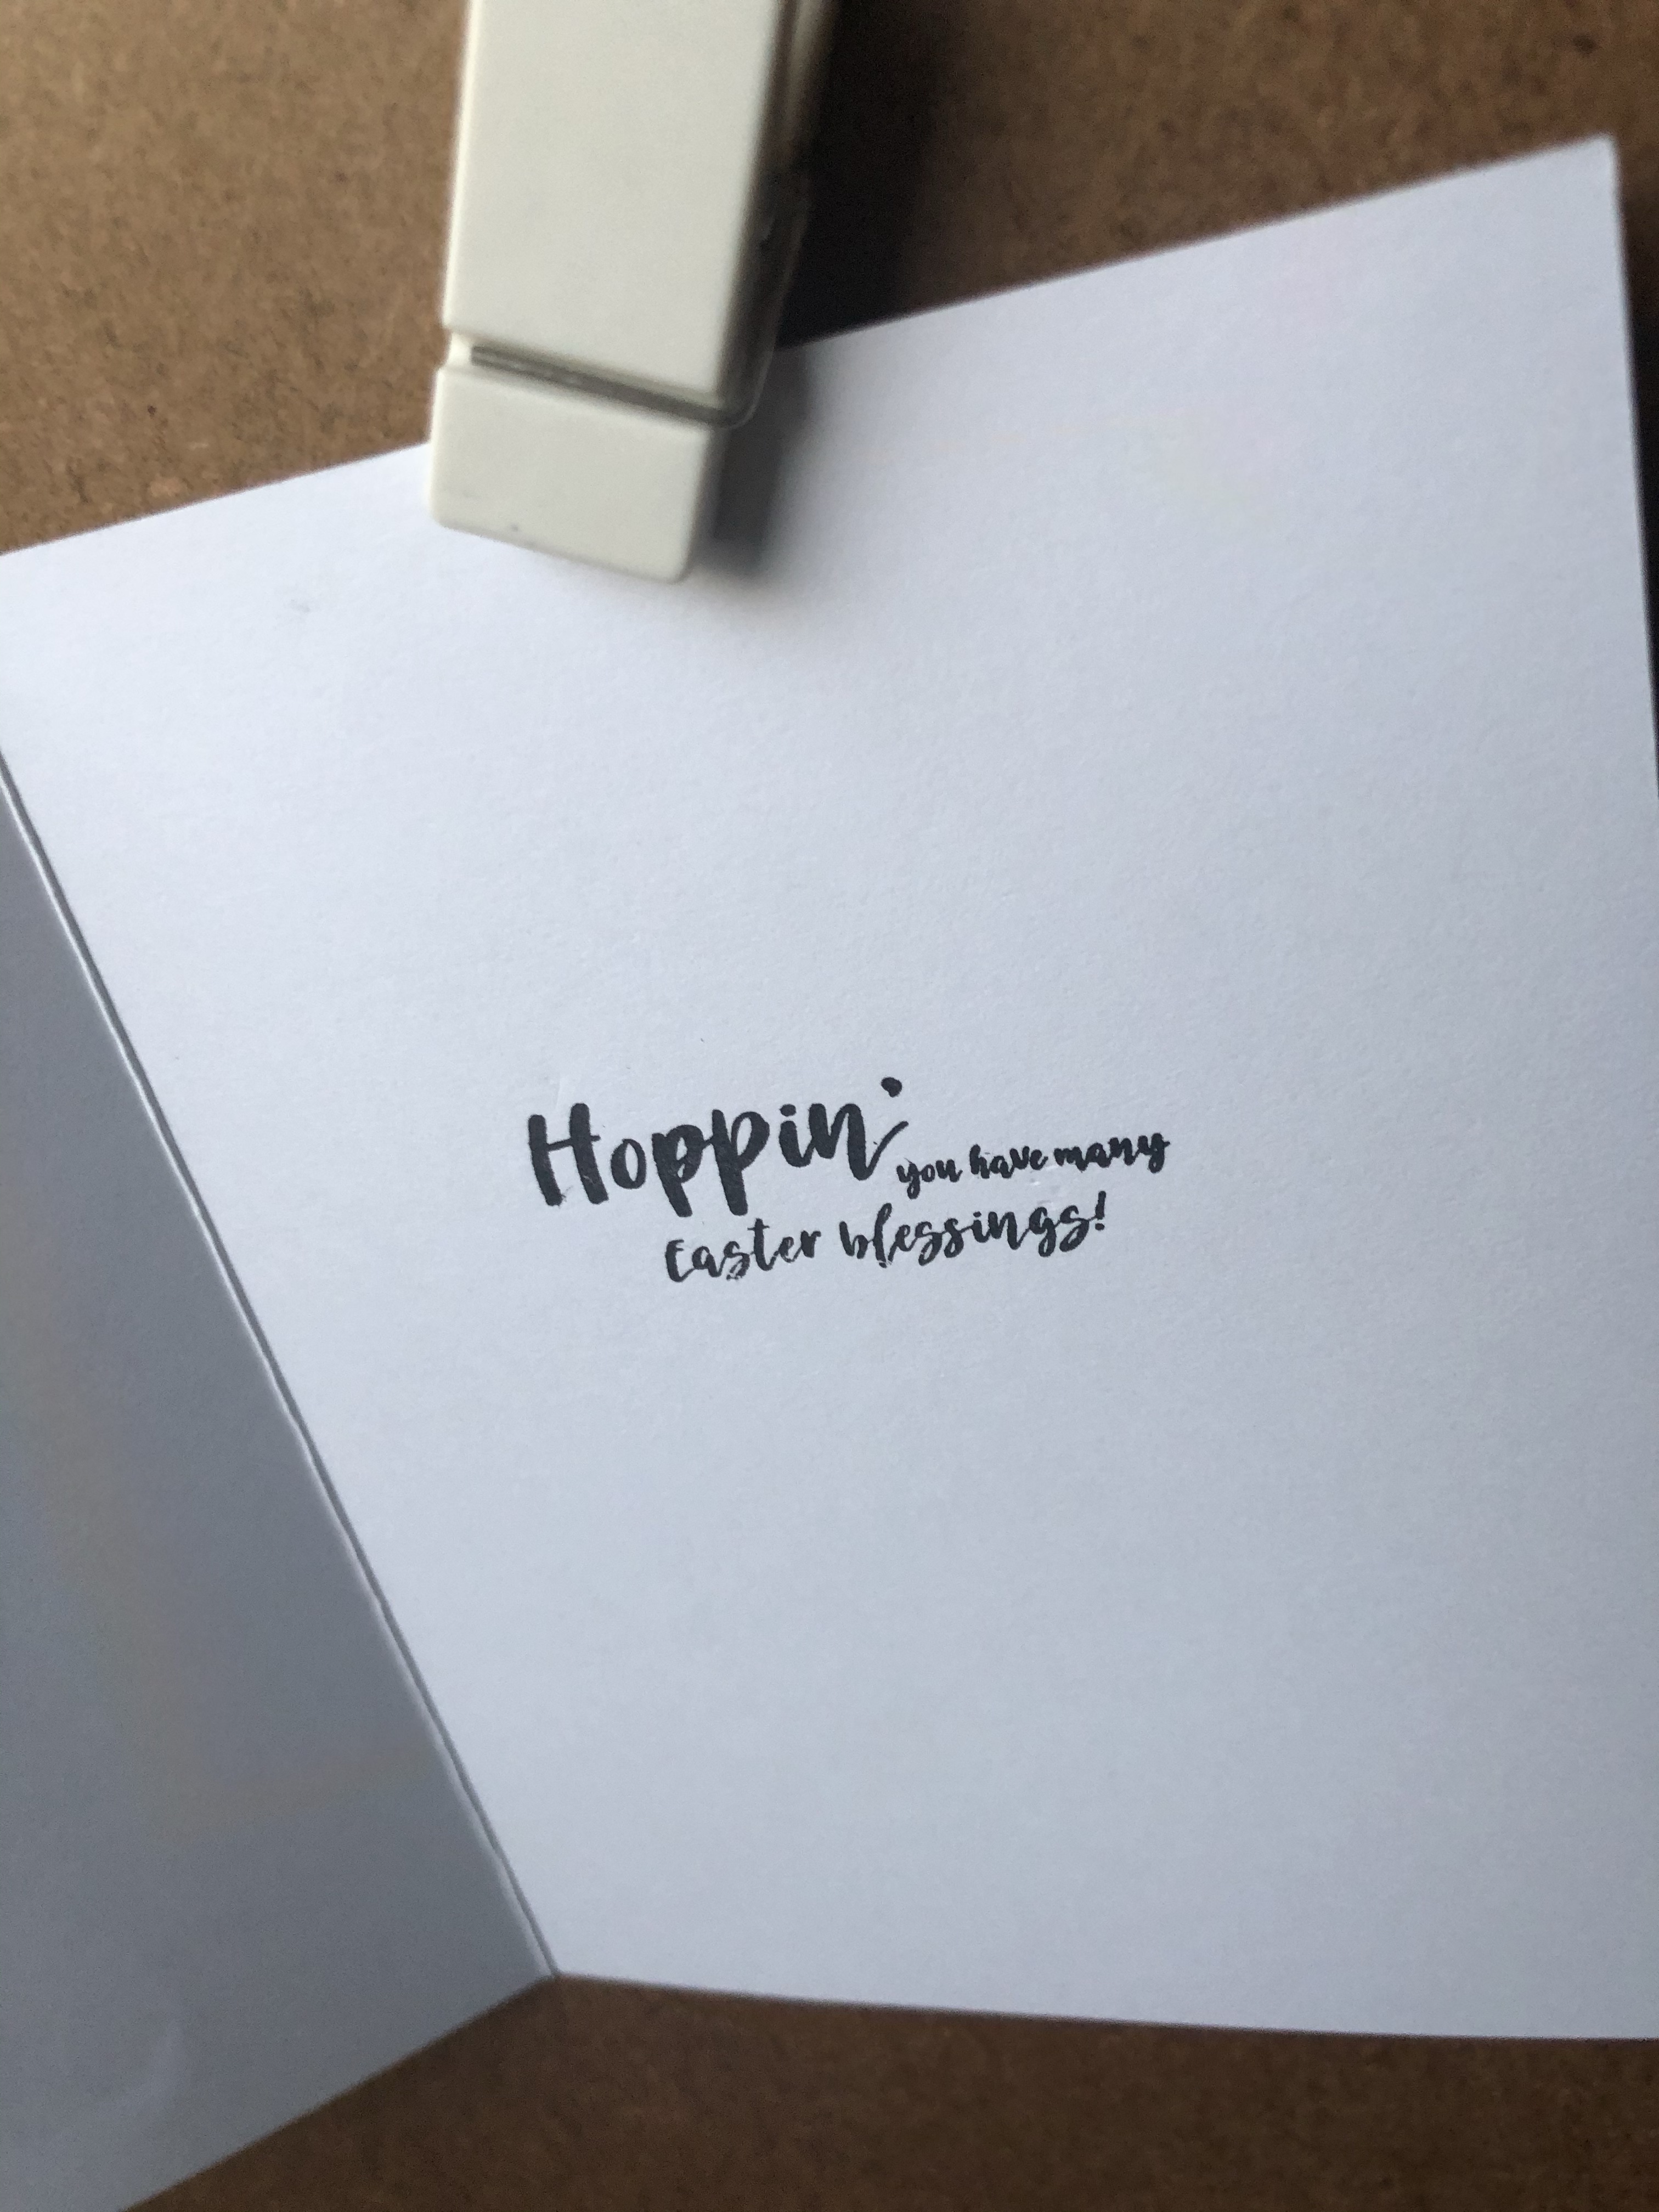 Hoppin' you have many
Easter blessings!